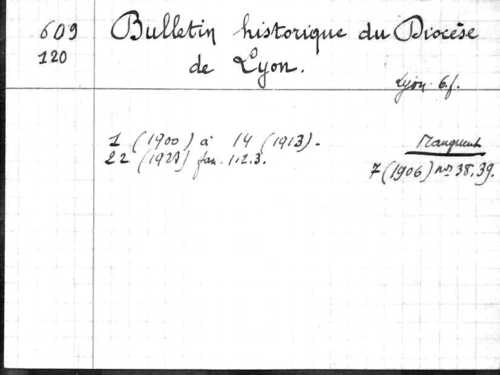 609
120
Bulletin historique du Diocèse
de Lyon.
Lyon. 6.f.
1 (1900) à 14 (1913).
22 (1923) fas. 1.2.3.
Manquent
7 (1906) nos 38, 39.